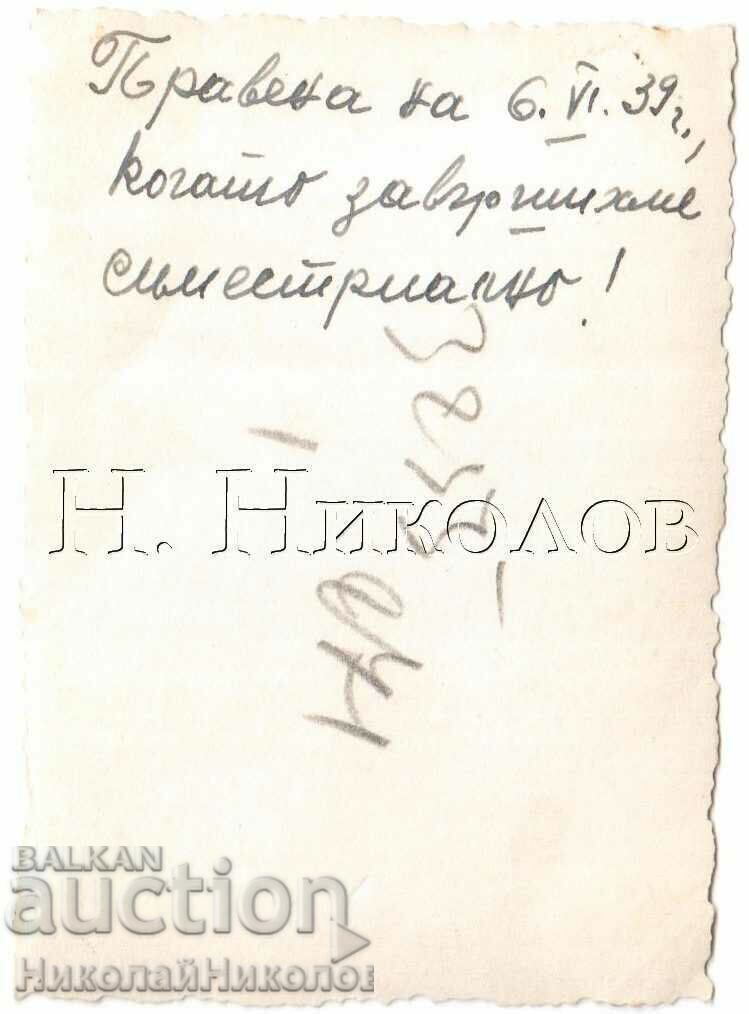 Правена на 6.VI.39г.,
когато завършихме
симестриално!
Н. Николов
BALKAN
auction
НиколайНиколов